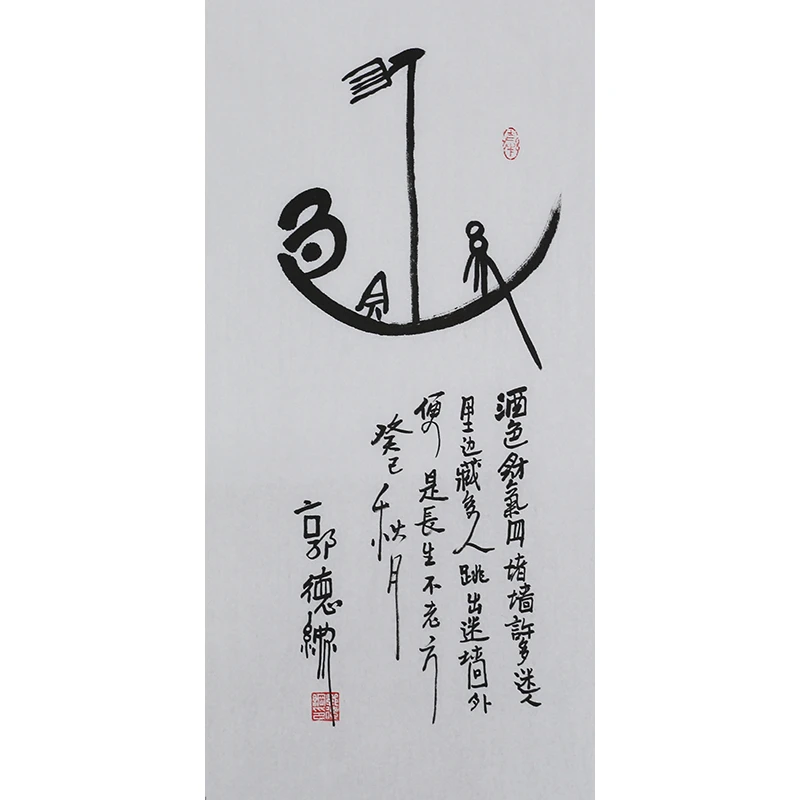 酒色財氣四堵墙許多迷人
里边藏人跳出迷墙外
便是長生不老方
癸巳秋月
郭德綱